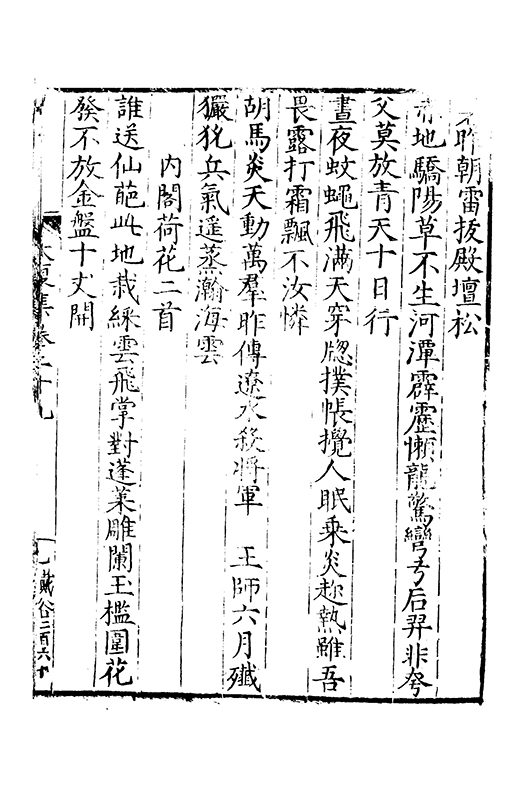 昨朝雷拔殿壇松
赤地驕陽草不生河潭霹靂懶龍驚彎弓后羿非夸
父莫放青天十日行
晝夜蚊蠅飛滿天穿牕撲帳攪人眠乘炎趂熱雖吾
畏露打霜飄不汝憐
胡馬炎天動萬羣昨傳遼水殺將軍　王師六月殲
玁狁兵氣遥蒸瀚海雲
内閣荷花二首
誰送仙葩此地栽綵雲飛掌對蓬萊雕闌玉檻圍花
發不放金盤十丈開
集卷之十九
二百六十